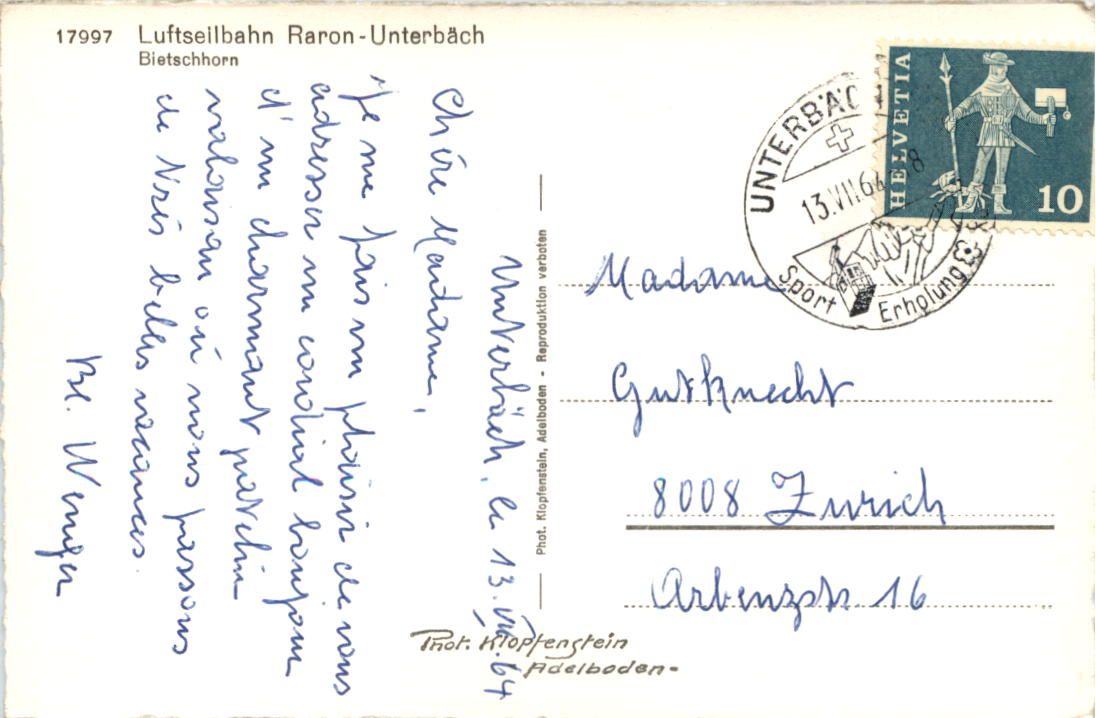 17997 Luftseilbahn Raron-Unterbäch
Bietschhorn
Unterbäch, le 13.VII.64
Chère Madame,
Je me fais un plaisir de vous
adresser un cordial bonjour
d'un charmant patelin
valaisan où nous passons
de très belles vacances.
Bl. Wenger
Phot. Klopfenstein, Adelboden - Reproduktion verboten
Phot. Klopfenstein
Adelboden-
HELVETIA
10
UNTERBÄCH
13.VII.64
8
Sport
Erholung
Madame
Gutknecht
8008 Zurich
Arbenzstr. 16